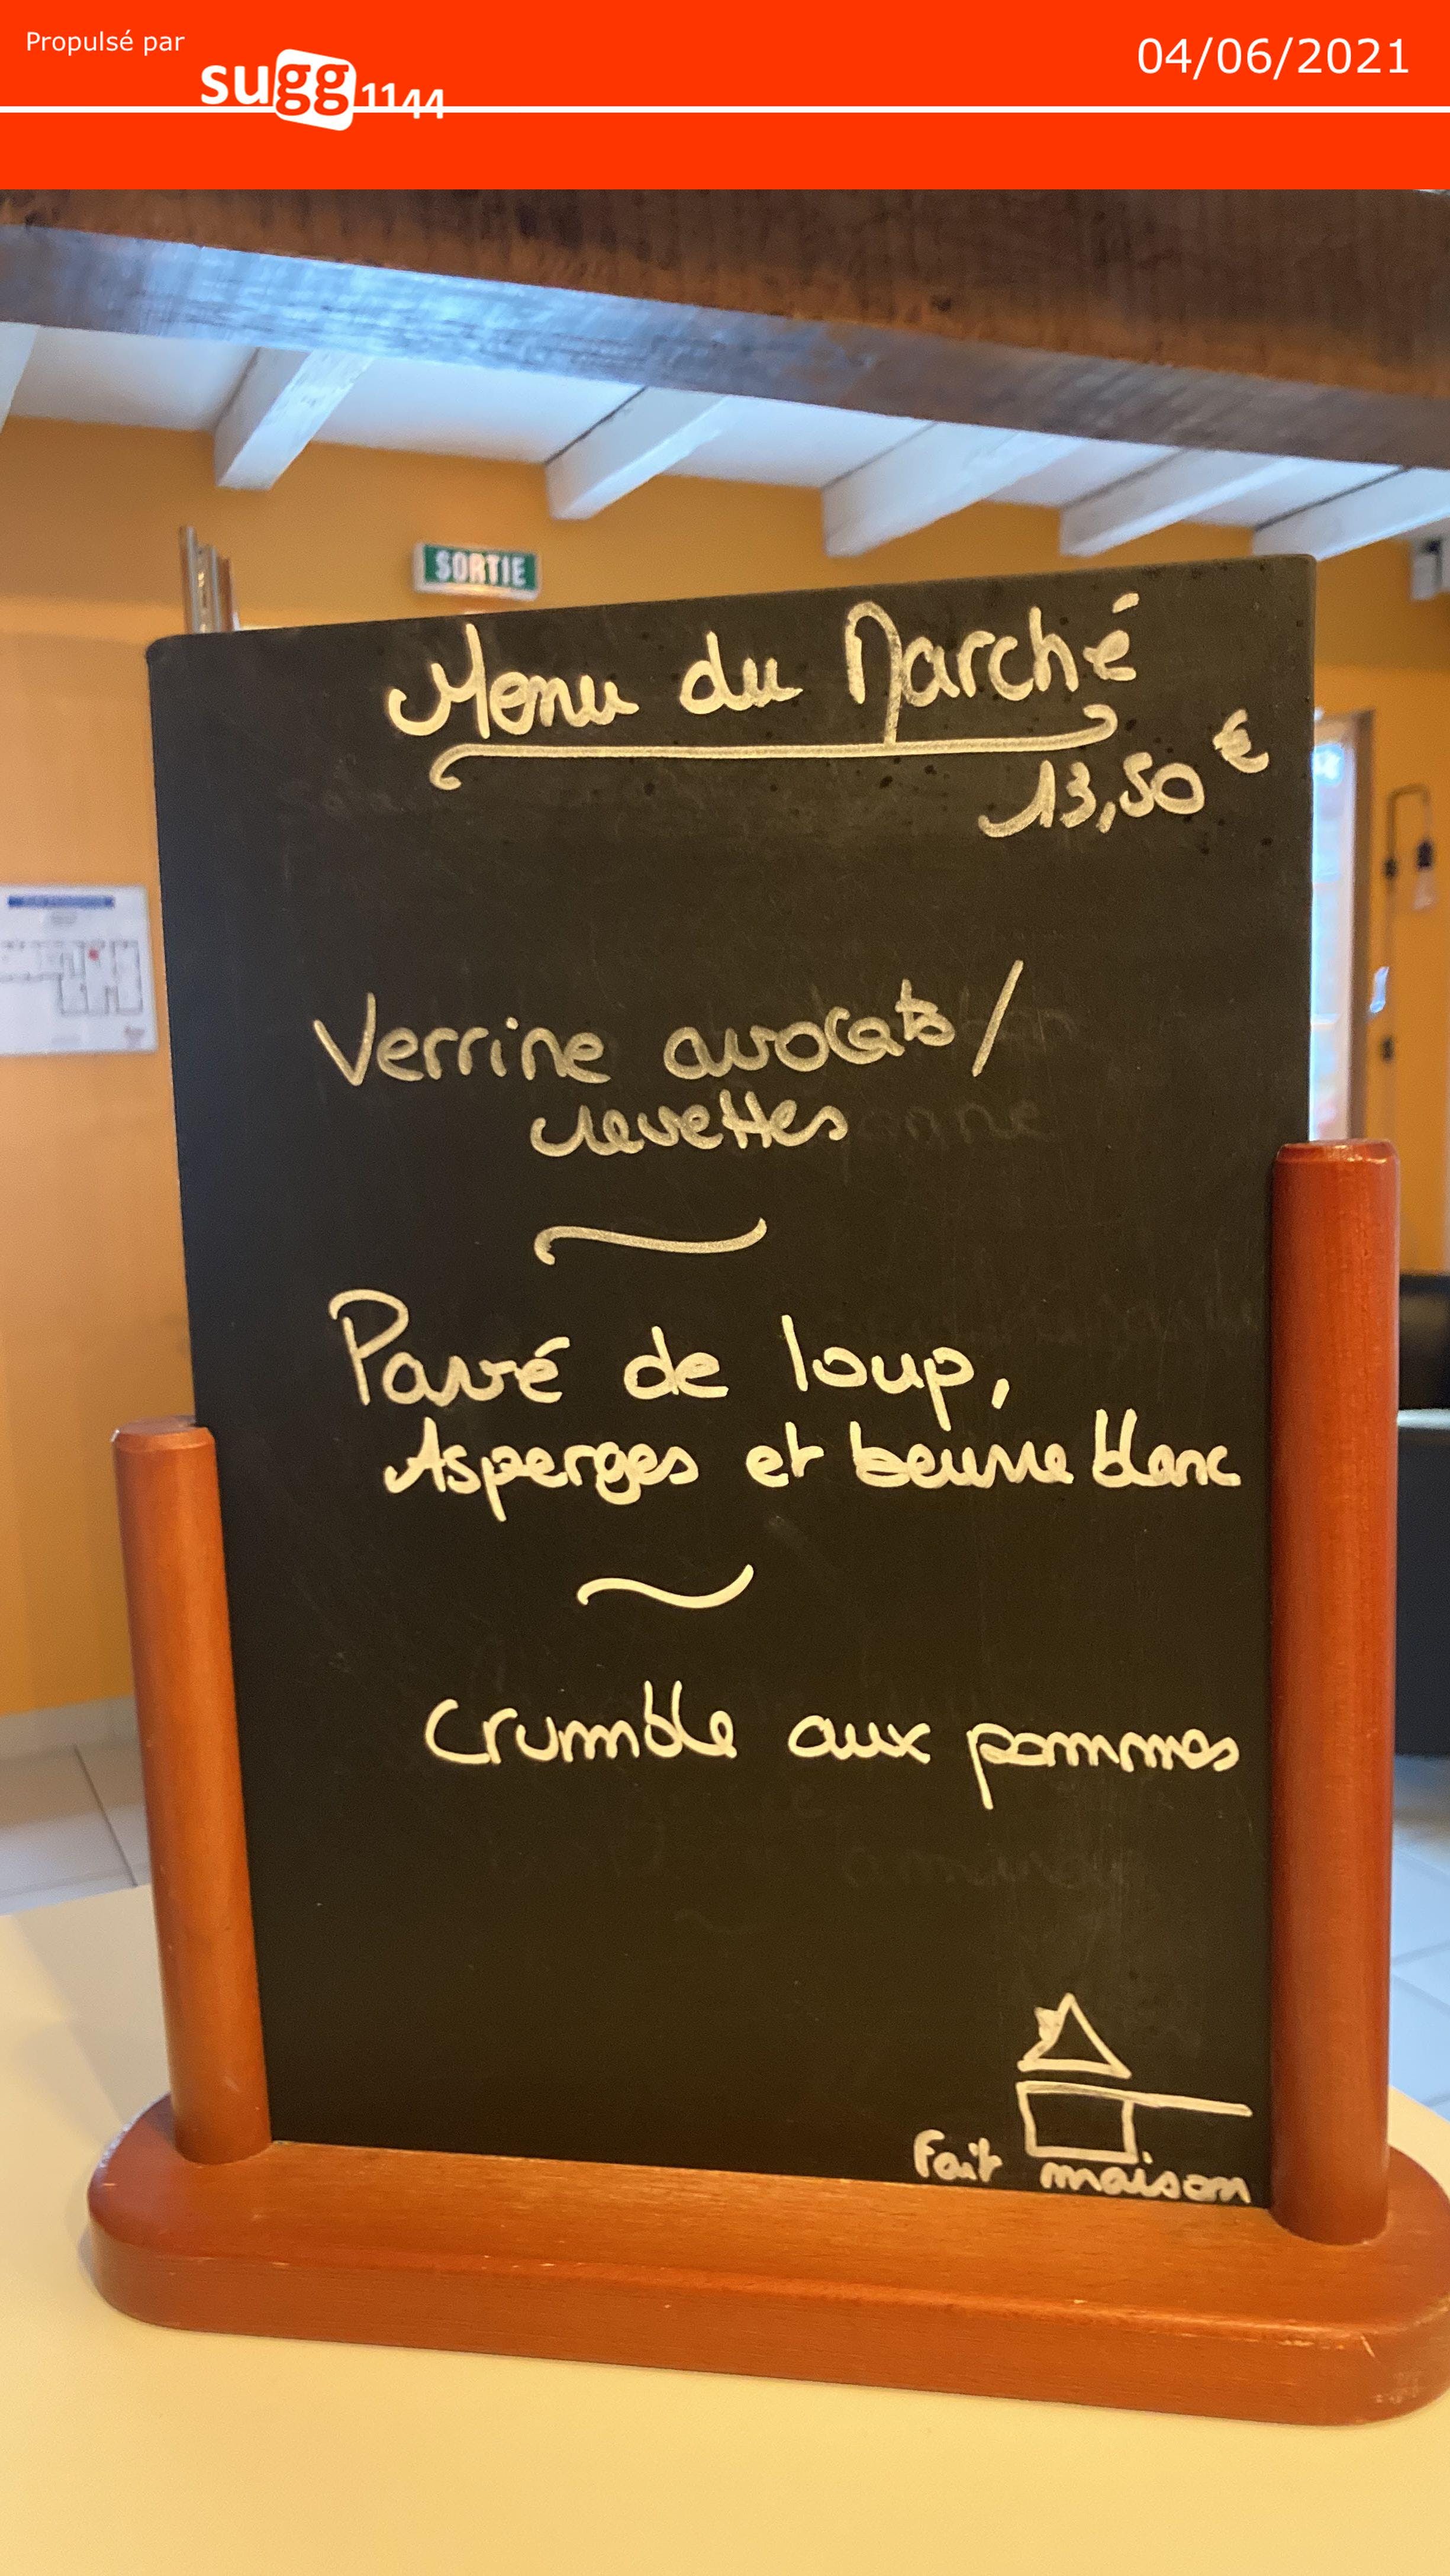 Propulsé par
sugg1144
04/06/2021
SORTIE
Menu du Marché
13,50 €
Verrine avocats/
crevettes
Pavé de loup,
Asperges et beurre blanc
Crumble aux pommes
Fait maison